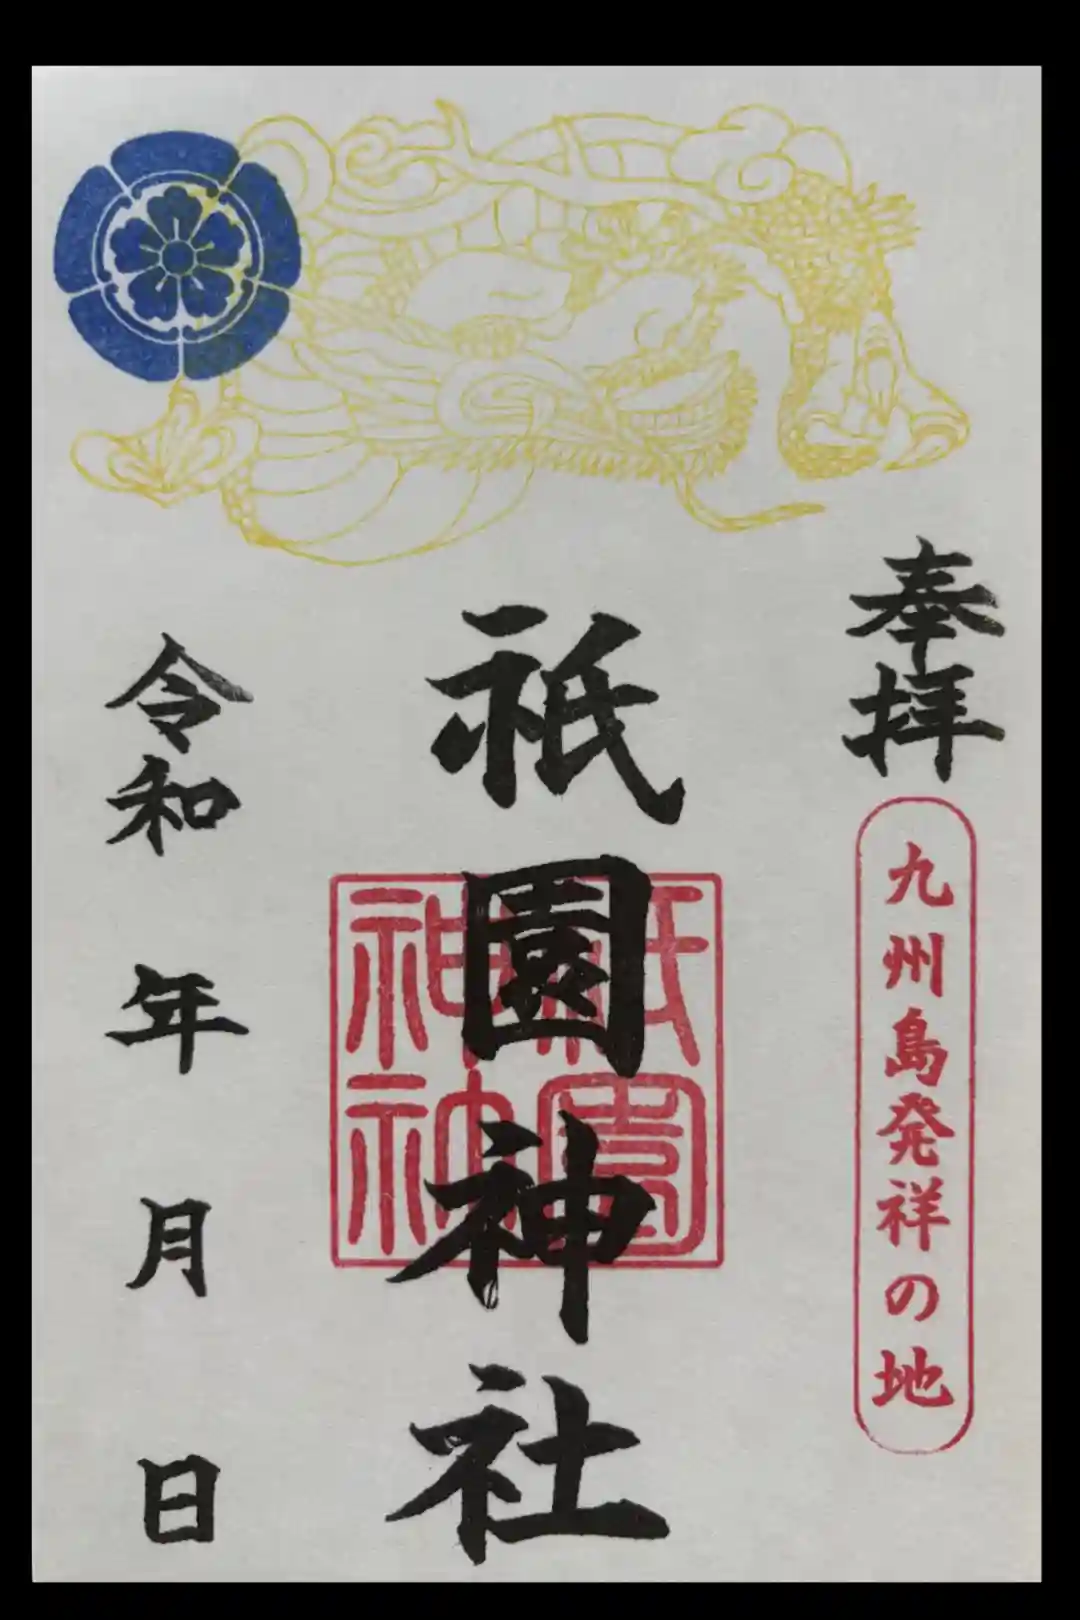 奉拝
九州島発祥の地
祇園神社
祇園
神社
令和 年 月 日